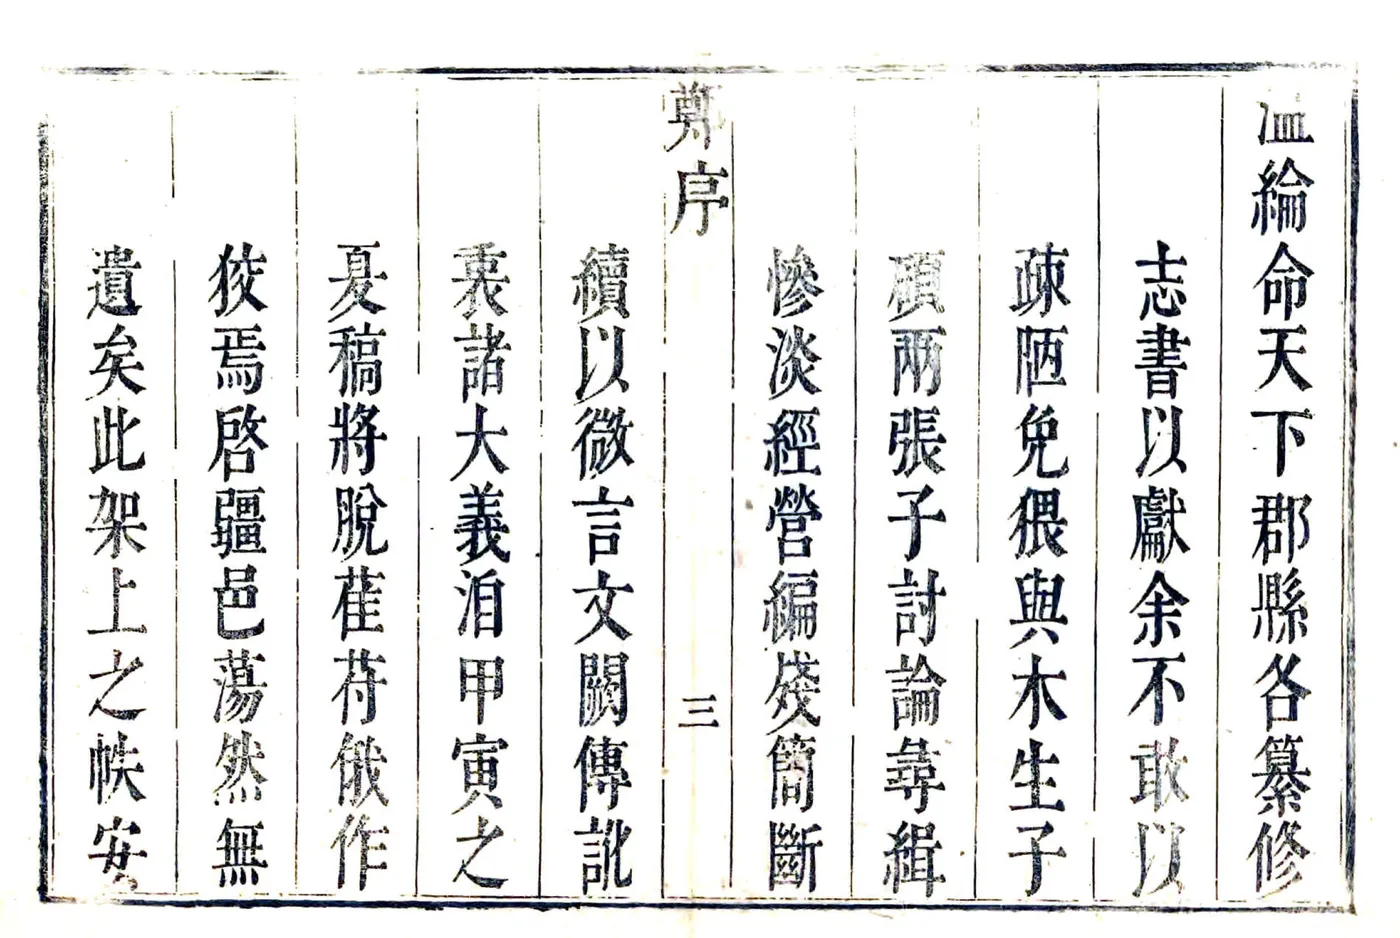 温綸命天下郡縣各纂修
志書以獻余不敢以
疎陋免猥與木生子
碩兩張子討論尋緝
慘淡經營編殘簡斷
鄭序
三
續以微言文闕傳訛
裒諸大義洎甲寅之
夏稿將脫萑苻俄作
狡焉啓疆邑蕩然無
遺矣此架上之帙安